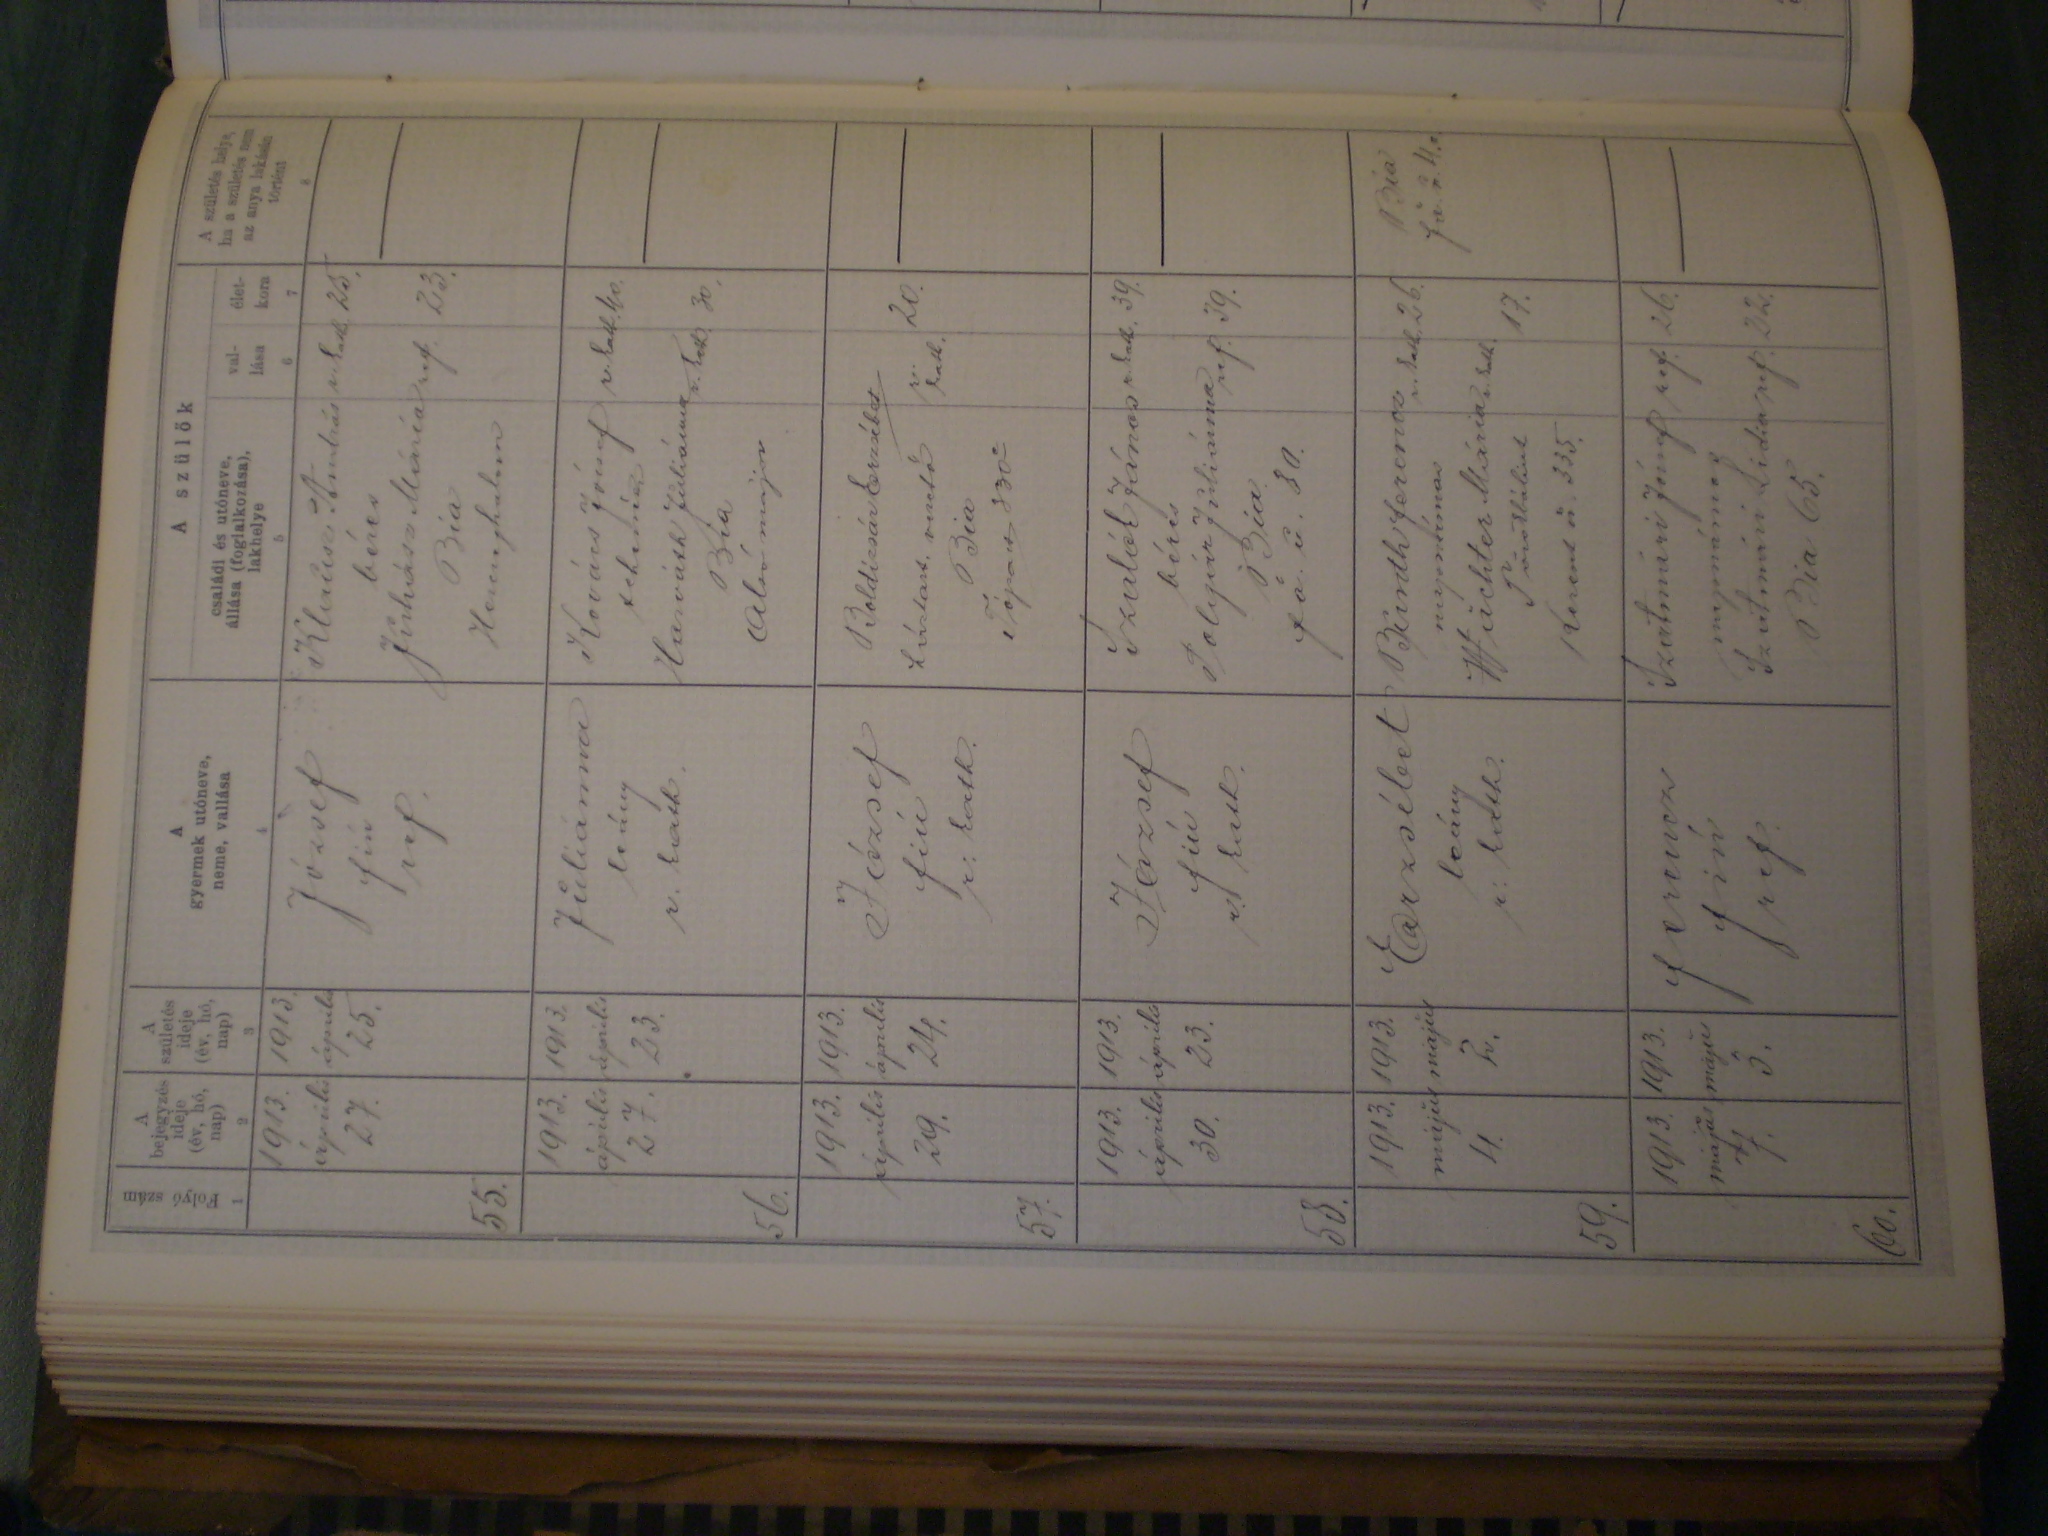 A szülők
Folyó szám
A bejegyzés ideje (év, hó, nap)
A születés ideje (év, hó, nap)
A gyermek utóneve, neme, vallása
családi és utóneve, állása (foglalkozása), lakhelye
val-lása
élet-kora
A születés helye, ha a születés nem az anya lakásán történt
1
2
3
4
5
6
7
8
55.
1913. április 27.
1913. április 25.
József
fiú
ref.
András r. kath. 25.
béres
Juhász Mária ref. 23.
Bia
Herceghalom
56.
1913. április 27.
1913. április 23.
Juliánna
leány
r. kath.
Kovács József r. kath. 40.
Horváth Juliánna r. kath. 30.
Bia
Alsómajor
57.
1913. április 29.
1913. április 24.
József
fiú
r. kath.
Boldizsár Erzsébet r. kath. 20.
Bia
58.
1913. április 30.
1913. április 23.
József
fiú
r. kath.
János r. kath. 39.
béres
Polgár Juliánna ref. 39.
Bia
fő u. 80.
59.
1913. május 4.
1913. május 2.
Erzsébet
leány
r. kath.
Ferencz r. kath. 26.
napszámos
Wächter Mária r. kath. 17.
Törökbálint
Kereszt u. 335.
Bia
60.
1913. május 7.
1913. május 3.
Ferencz
fiú
ref.
Szatmári József ref. 26.
napszámos
Szatmári Lidia ref. 22.
Bia 65.